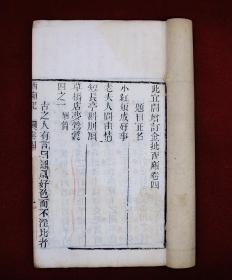 此宜閣增訂金批西廂卷四
題目正名
小紅娘成好事
老夫人問由情
短長亭斟別酒
草橋店夢鶯鶯
四之一 酬簡
古之人有言曰國風好色而不淫比者